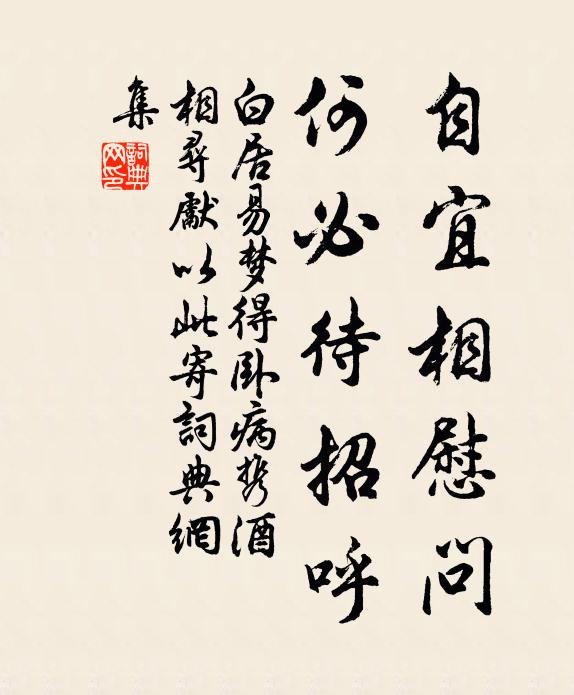 自宜相慰问
何必待招呼
白居易梦得卧病携酒
相寻献以此寄词典網
集
詞典
网印